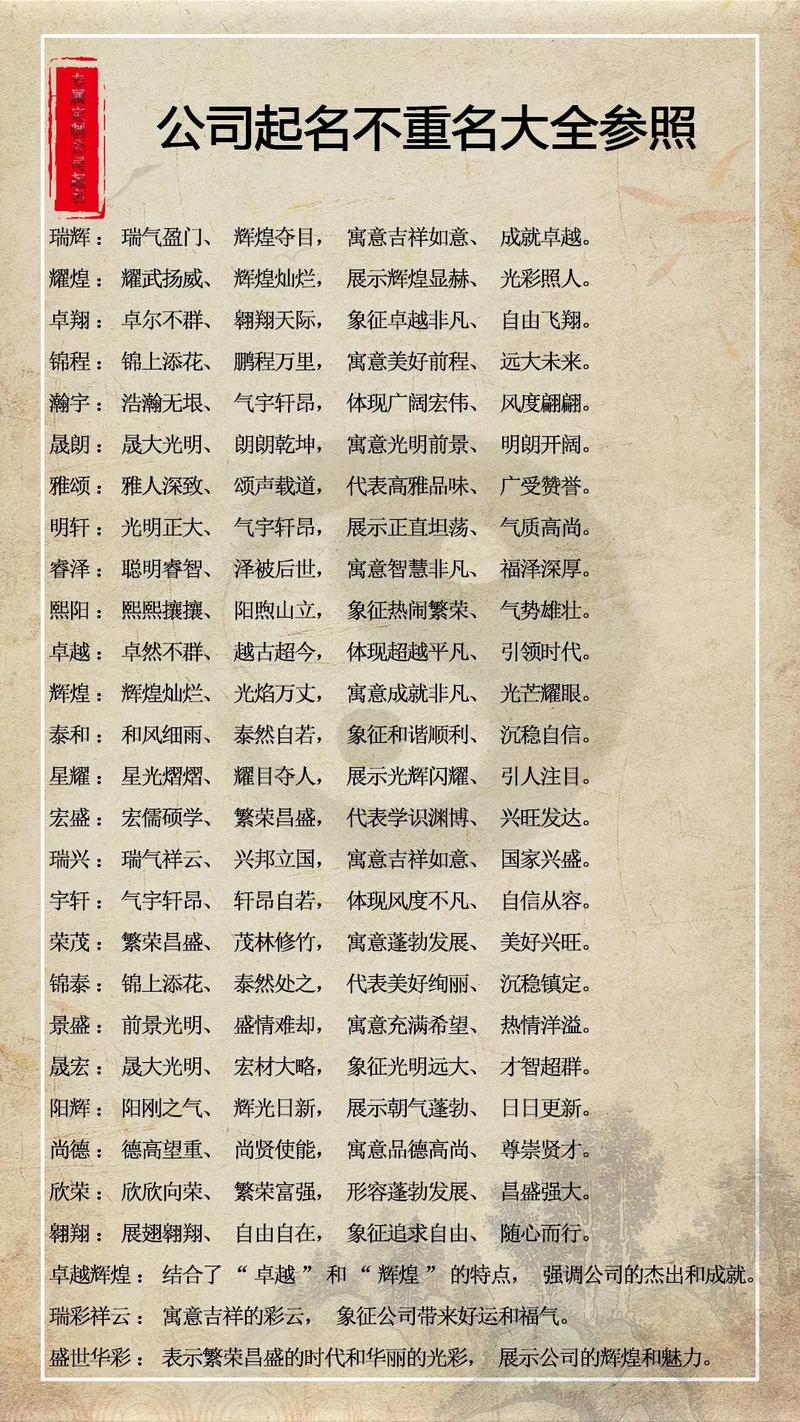 公司起名不重名大全参照
瑞辉： 瑞气盈门、 辉煌夺目， 寓意吉祥如意、 成就卓越。
耀煌： 耀武扬威、 辉煌灿烂， 展示辉煌显赫、 光彩照人。
卓翔： 卓尔不群、 翱翔天际， 象征卓越非凡、 自由飞翔。
锦程： 锦上添花、 鹏程万里， 寓意美好前程、 远大未来。
瀚宇： 浩瀚无垠、 气宇轩昂， 体现广阔宏伟、 风度翩翩。
晟朗： 晟大光明、 朗朗乾坤， 寓意光明前景、 明朗开阔。
雅颂： 雅人深致、 颂声载道， 代表高雅品味、 广受赞誉。
明轩： 光明正大、 气宇轩昂， 展示正直坦荡、 气质高尚。
睿泽： 聪明睿智、 泽被后世， 寓意智慧非凡、 福泽深厚。
熙阳： 熙熙攘攘、 阳煦山立， 象征热闹繁荣、 气势雄壮。
卓越： 卓然不群、 越古超今， 体现超越平凡、 引领时代。
辉煌： 辉煌灿烂、 光焰万丈， 寓意成就非凡、 光芒耀眼。
泰和： 和风细雨、 泰然自若， 象征和谐顺利、 沉稳自信。
星耀： 星光熠熠、 耀目夺人， 展示光辉闪耀、 引人注目。
宏盛： 宏儒硕学、 繁荣昌盛， 代表学识渊博、 兴旺发达。
瑞兴： 瑞气祥云、 兴邦立国， 寓意吉祥如意、 国家兴盛。
宇轩： 气宇轩昂、 轩昂自若， 体现风度不凡、 自信从容。
荣茂： 繁荣昌盛、 茂林修竹， 寓意蓬勃发展、 美好兴旺。
锦泰： 锦上添花、 泰然处之， 代表美好绚丽、 沉稳镇定。
景盛： 前景光明、 盛情难却， 寓意充满希望、 热情洋溢。
晟宏： 晟大光明、 宏材大略， 象征光明远大、 才智超群。
阳辉： 阳刚之气、 辉光日新， 展示朝气蓬勃、 日日更新。
尚德： 德高望重、 尚贤使能， 寓意品德高尚、 尊崇贤才。
欣荣： 欣欣向荣、 繁荣富强， 形容蓬勃发展、 昌盛强大。
翱翔： 展翅翱翔、 自由自在， 象征追求自由、 随心而行。
卓越辉煌： 结合了 “ 卓越 ” 和 “ 辉煌 ” 的特点， 强调公司的杰出和成就。
瑞彩祥云： 寓意吉祥的彩云， 象征公司带来好运和福气。
盛世华彩： 表示繁荣昌盛的时代和华丽的光彩， 展示公司的辉煌和魅力。